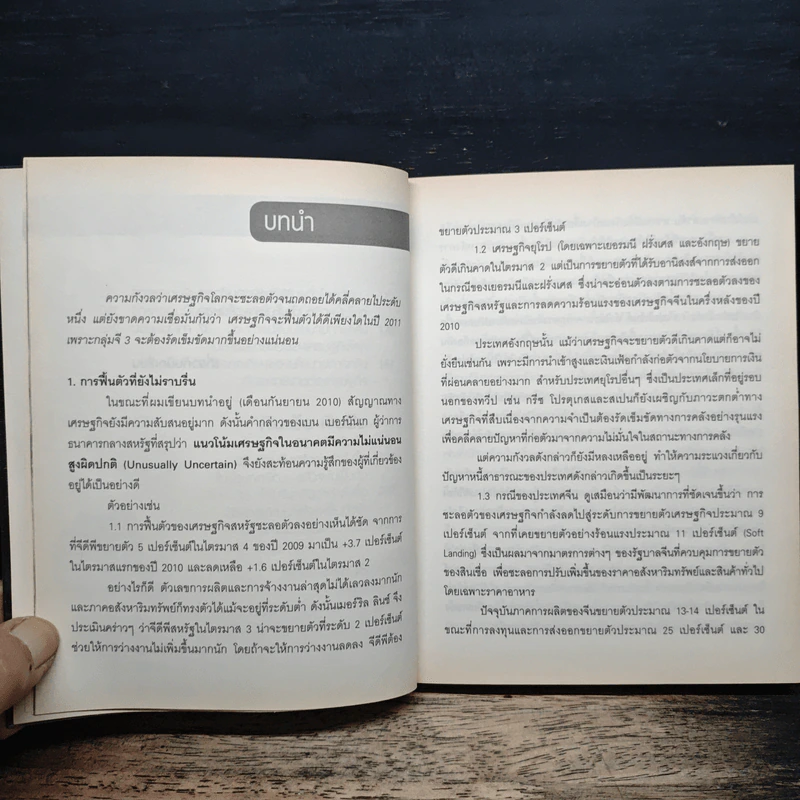 บทนำ
ความกังวลว่าเศรษฐกิจโลกจะชะลอตัวจนถดถอยได้คลี่คลายไประดับ
หนึ่ง แต่ยังขาดความเชื่อมั่นกันว่า เศรษฐกิจจะฟื้นตัวได้ดีเพียงใดในปี 2011
เพราะกลุ่มจี 3 จะต้องรัดเข็มขัดมากขึ้นอย่างแน่นอน
1. การฟื้นตัวที่ยังไม่ราบรื่น
ในขณะที่ผมเขียนบทนำอยู่ (เดือนกันยายน 2010) สัญญาณทาง
เศรษฐกิจยังมีความสับสนอยู่มาก ดังนั้นคำกล่าวของเบน เบอร์นันเก ผู้ว่าการ
ธนาคารกลางสหรัฐที่สรุปว่า แนวโน้มเศรษฐกิจในอนาคตมีความไม่แน่นอน
สูงผิดปกติ (Unusually Uncertain) จึงยังสะท้อนความรู้สึกของผู้ที่เกี่ยวข้อง
อยู่ได้เป็นอย่างดี
ตัวอย่างเช่น
1.1 การฟื้นตัวของเศรษฐกิจสหรัฐชะลอตัวลงอย่างเห็นได้ชัด จากการ
ที่จีดีพีขยายตัว 5 เปอร์เซ็นต์ในไตรมาส 4 ของปี 2009 มาเป็น +3.7 เปอร์เซ็นต์
ในไตรมาสแรกของปี 2010 และลดเหลือ +1.6 เปอร์เซ็นต์ในไตรมาส 2
อย่างไรก็ดี ตัวเลขการผลิตและการจ้างงานล่าสุดไม่ได้เลวลงมากนัก
และภาคอสังหาริมทรัพย์ก็ทรงตัวได้แม้จะอยู่ที่ระดับต่ำ ดังนั้นเมอร์ริล ลินช์ จึง
ประเมินคร่าวๆ ว่าจีดีพีสหรัฐในไตรมาส 3 น่าจะขยายตัวที่ระดับ 2 เปอร์เซ็นต์
ช่วยให้การว่างงานไม่เพิ่มขึ้นมากนัก โดยถ้าจะให้การว่างงานลดลง จีดีพีต้อง
ขยายตัวประมาณ 3 เปอร์เซ็นต์
1.2 เศรษฐกิจยุโรป (โดยเฉพาะเยอรมนี ฝรั่งเศส และอังกฤษ) ขยาย
ตัวดีเกินคาดในไตรมาส 2 แต่เป็นการขยายตัวที่ได้รับอานิสงส์จากการส่งออก
ในกรณีของเยอรมนีและฝรั่งเศส ซึ่งน่าจะอ่อนตัวลงตามการชะลอตัวลงของ
เศรษฐกิจสหรัฐและการลดความร้อนแรงของเศรษฐกิจจีนในครึ่งหลังของปี
2010
ประเทศอังกฤษนั้น แม้ว่าเศรษฐกิจจะขยายตัวดีเกินคาดแต่ก็อาจไม่
ยั่งยืนเช่นกัน เพราะมีการนำเข้าสูงและเงินเฟ้อกำลังก่อตัวจากนโยบายการเงิน
ที่ผ่อนคลายอย่างมาก สำหรับประเทศยุโรปอื่นๆ ซึ่งเป็นประเทศเล็กที่อยู่รอบ
นอกของทวีป เช่น กรีซ โปรตุเกสและสเปนก็ยังเผชิญกับภาวะตกต่ำทาง
เศรษฐกิจที่สืบเนื่องจากความจำเป็นต้องรัดเข็มขัดทางการคลังอย่างรุนแรง
เพื่อคลี่คลายปัญหาที่ก่อตัวมาจากความไม่มั่นใจในสถานะทางการคลัง
แต่ความกังวลดังกล่าวก็ยังมีหลงเหลืออยู่ ทำให้ความระแวงเกี่ยวกับ
ปัญหาหนี้สาธารณะของประเทศดังกล่าวเกิดขึ้นเป็นระยะๆ
1.3 กรณีของประเทศจีน ดูเสมือนว่ามีพัฒนาการที่ชัดเจนขึ้นว่า การ
ชะลอตัวของเศรษฐกิจกำลังลดไปสู่ระดับการขยายตัวเศรษฐกิจประมาณ 9
เปอร์เซ็นต์ จากที่เคยขยายตัวอย่างร้อนแรงประมาณ 11 เปอร์เซ็นต์ (Soft
Landing) ซึ่งเป็นผลมาจากมาตรการต่างๆ ของรัฐบาลจีนที่ควบคุมการขยายตัว
ของสินเชื่อ เพื่อชะลอการปรับเพิ่มขึ้นของราคาอสังหาริมทรัพย์และสินค้าทั่วไป
โดยเฉพาะราคาอาหาร
ปัจจุบันภาคการผลิตของจีนขยายตัวประมาณ 13-14 เปอร์เซ็นต์ ใน
ขณะที่การลงทุนและการส่งออกขยายตัวประมาณ 25 เปอร์เซ็นต์ และ 30